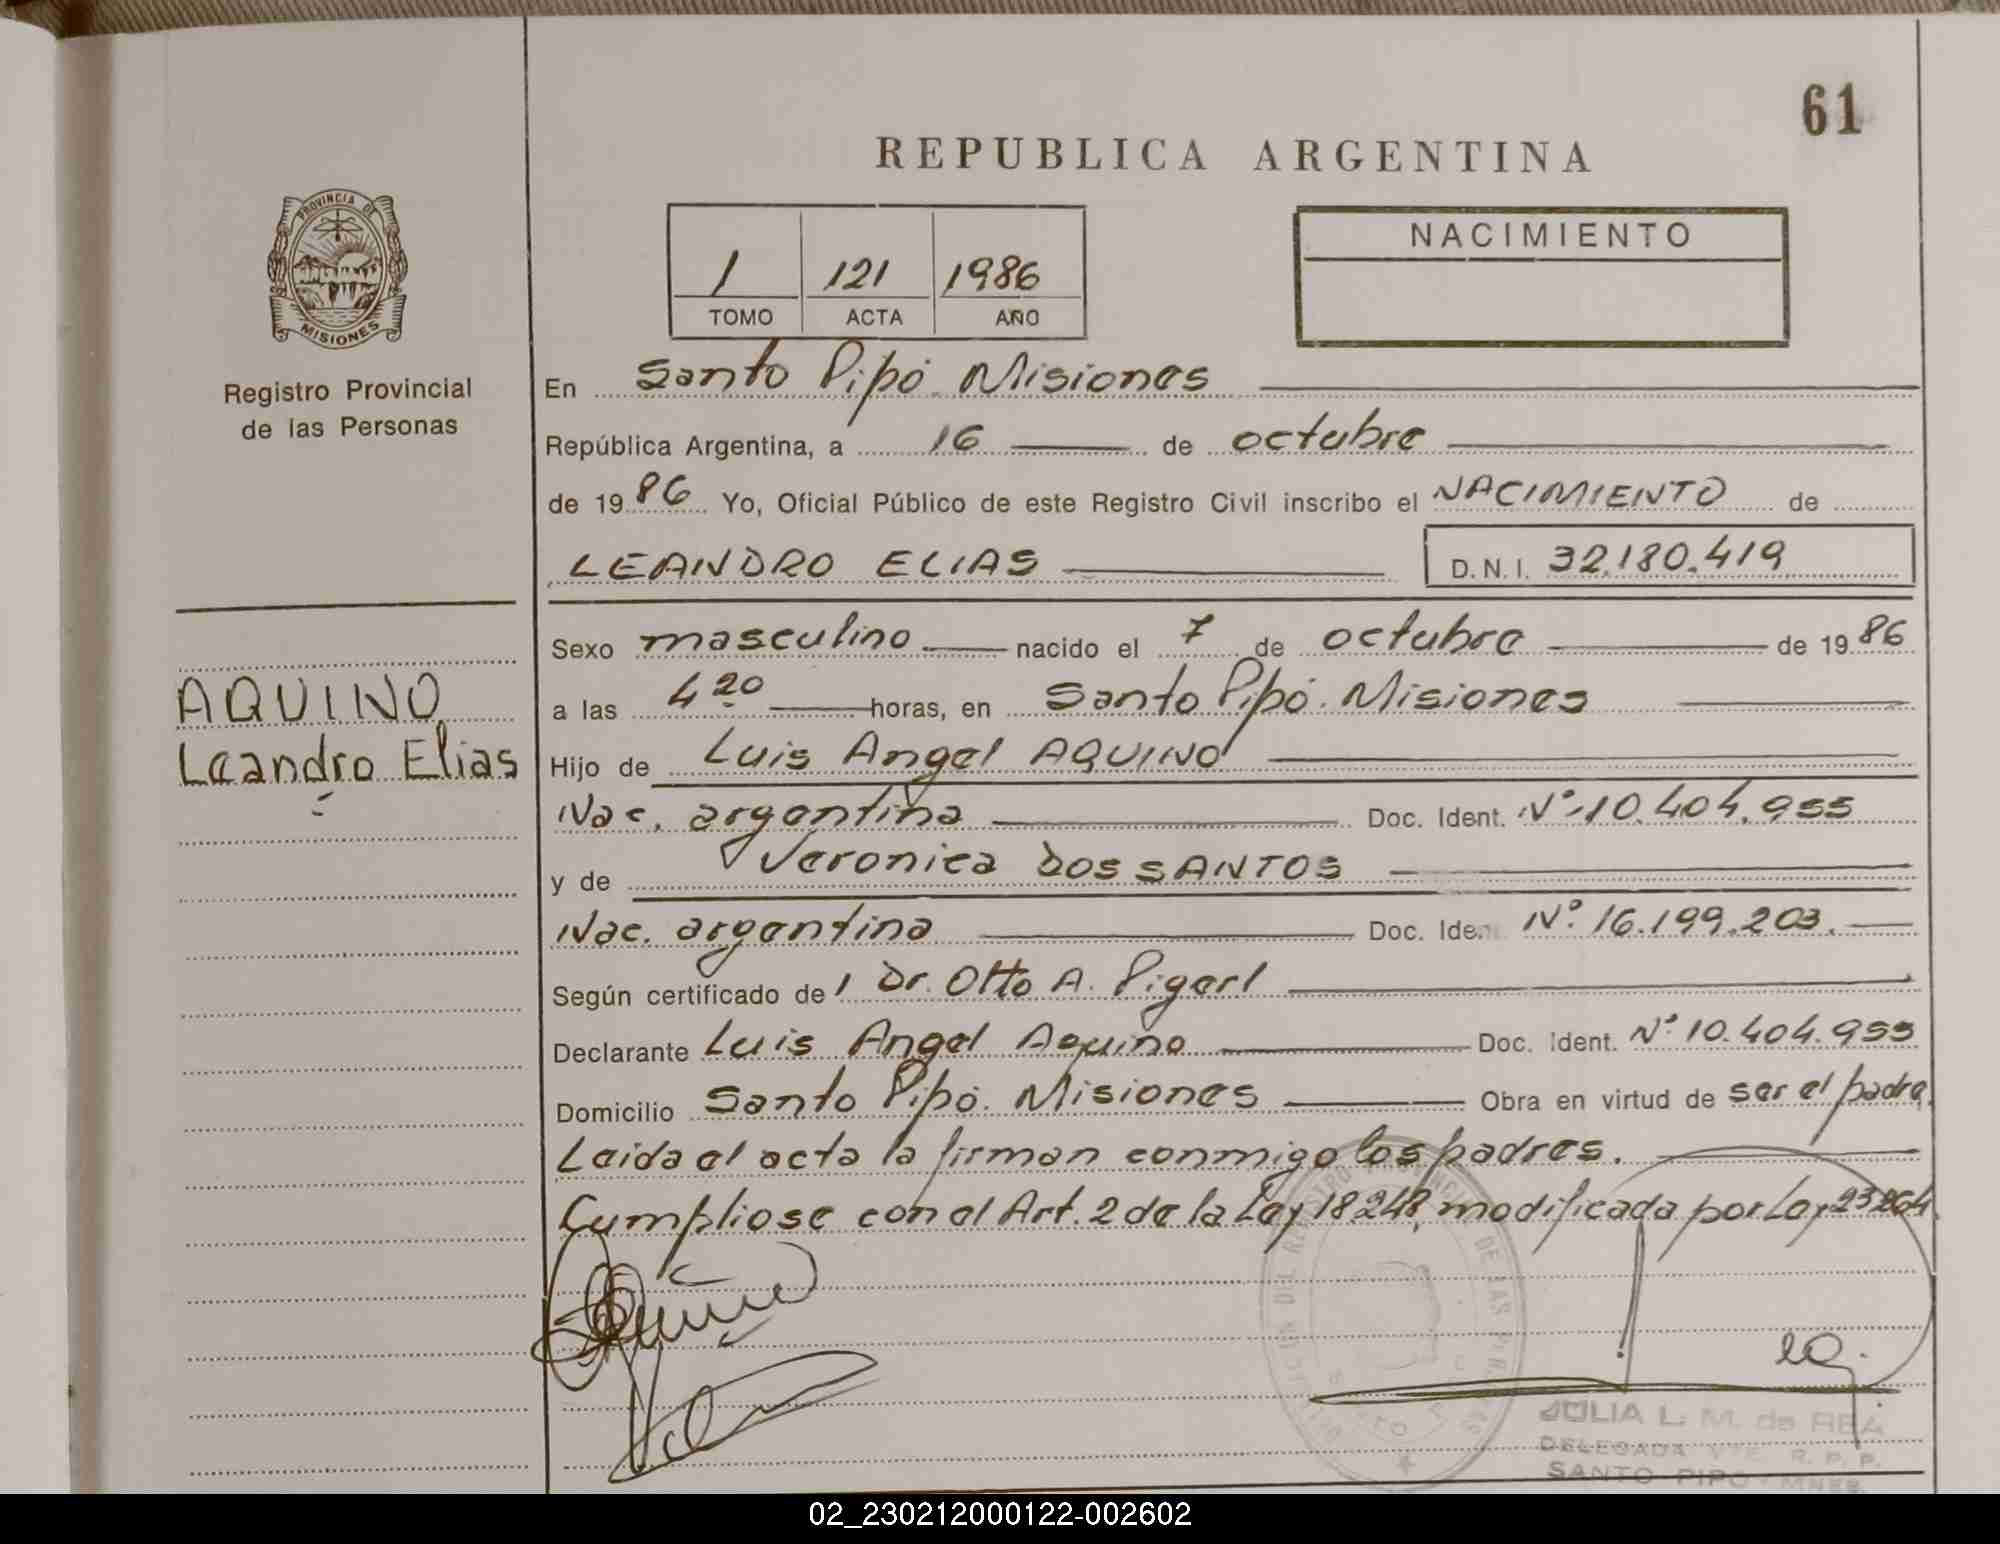 61
REPUBLICA ARGENTINA
PROVINCIA DE
MISIONES
Registro Provincial
de las Personas
AQUINO
Leandro Elias
1 121 1986
TOMO ACTA AÑO
NACIMIENTO
En Santo Pipó. Misiones
República Argentina, a 16 de octubre
de 1986 Yo, Oficial Público de este Registro Civil inscribo el NACIMIENTO de
LEANDRO ELIAS D.N.I. 32.180.419
Sexo masculino nacido el 7 de octubre de 1986
a las 4 20 horas, en Santo Pipó. Misiones
Hijo de Luis Angel AQUINO
Nac. argentina Doc. Ident. Nº 10.404.955
y de Veronica DOS SANTOS
Nac. argentina Doc. Iden Nº 16.199.203.
Según certificado del Dr. Otto A. Pigerl
Declarante Luis Angel Aquino Doc. Ident. Nº 10.404.955
Domicilio Santo Pipó. Misiones Obra en virtud de ser el padre.
Leida el acta la firman conmigo los padres.
Cumpliose con el Art. 2 de la Ley 18248, modificada por Ley 23264
JULIA L. M. de REA
DELEGADA R. P. P.
SANTO PIPO - MNES.
02_230212000122-002602